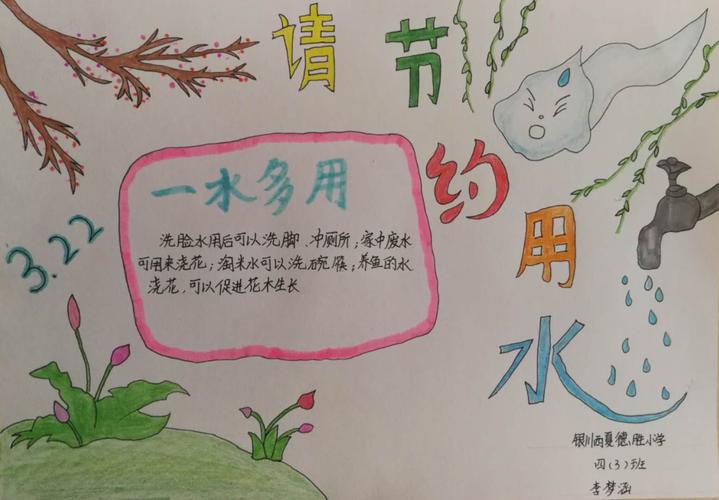 请节约用水
3.22
一水多用
洗脸水用后可以洗脚、冲厕所;家中废水
可用来浇花;淘米水可以洗碗筷;养鱼的水
浇花,可以促进花木生长
银川西夏德胜小学
四(3)班
李梦涵